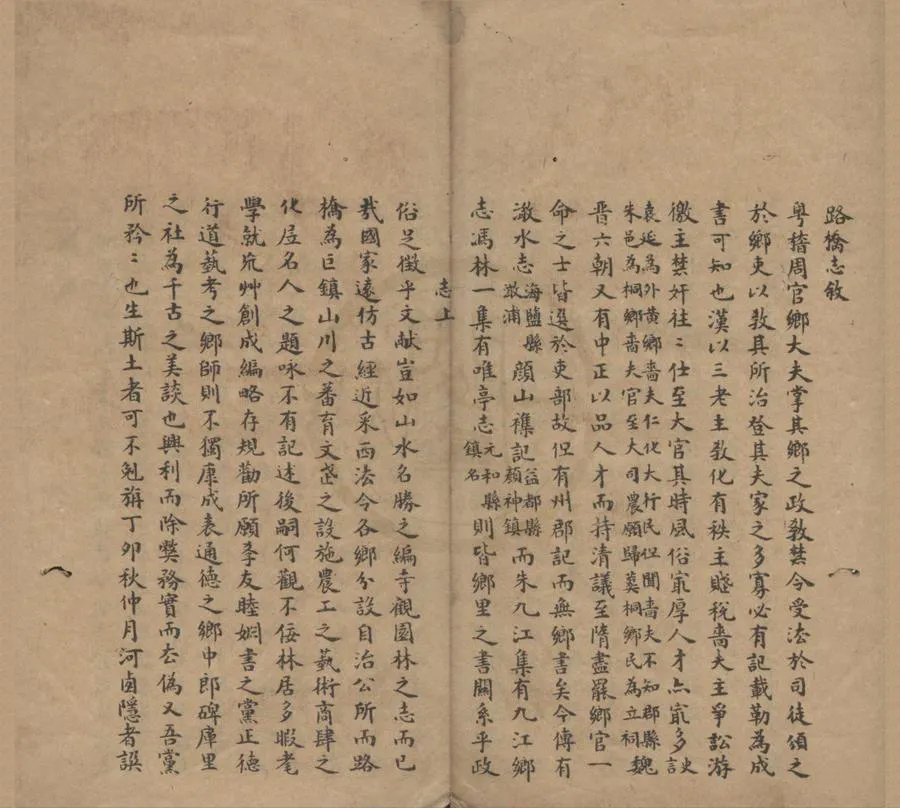 路橋志敘
粤稽周官鄉大夫掌其鄉之政教禁令受法於司徒頒之
於鄉吏以敎其所治登其夫家之多寡必有記載勒為成
書可知也漢以三老主敎化有秩主賦稅嗇夫主爭訟游
徼主禁奸往〻仕至大官其時風俗㝡厚人才亦㝡多
袁延為外黃鄉嗇夫仁化大行民但聞嗇夫不知郡縣魏
朱邑為桐鄉嗇夫官至大司農願歸葬桐鄉民為立祠
晋六朝又有中正以品人才而持清議至隋盡罷鄉官一
命之士皆選於吏部故但有州郡記而無鄉書矣今傳有
澉水志海鹽縣澉浦顔山襍記益都縣顔神鎮而朱九江集有九江鄉
志馮林一集有唯亭志元和縣鎮名則皆鄉里之書關系乎政
志上
俗足徵乎文献豈如山水名勝之編寺觀園林之志而已
㦲國家遠仿古經近采西法今各鄉分設自治公所而路
橋為巨鎮山川之蕃育文茋之設施農工之藝術商肆之
化居名人之題咏不有記述後嗣何觀不佞林居多暇耄
學就荒艸創成編略存規勸所願孝友睦婣書之黨正德
行道藝考之鄉師則不獨康成表通德之鄉中郎碑庫里
之社為千古之美談也興利而除獘務實而去偽又吾黨
所矜〻也生斯土者可不勉旃丁卯秋仲月河鹵隱者譔